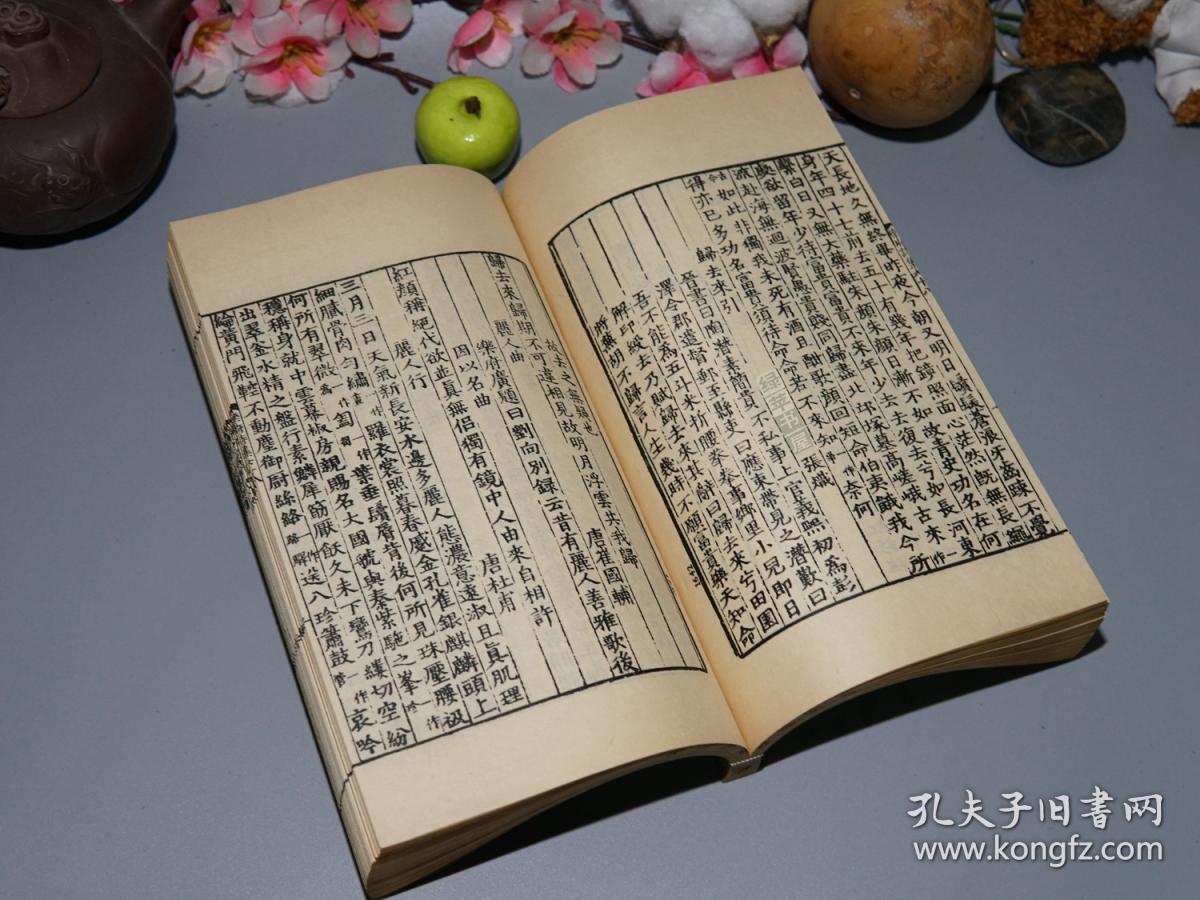 天長地久無終畢昨夜今朝又明日鬢髮蒼浪牙齒疎不覺
身年四十七前去五十有幾年把鏡照面心茫然既無長繩
繫白日又無大藥駐朱顏朱顏日漸不如故青史功名在何
處欲留年少待富貴富貴不來年少去去復去兮如長河東
流赴海無迴波賢愚貴賤同歸盡北邙塚墓高嵯峨古來一作
如此非獨我未死有酒且酣歌顏回短命伯夷餓我今所
得亦已多功名富貴須待命命若不來知一作奈何
歸去來引 張熾
晉書曰陶潛素簡貴不私事上官義熙初為彭
澤令郡遣督郵至縣吏曰應束帶見之潛歎曰
吾不能為五斗米折腰拳拳事鄉里小兒即日
解印綬去乃賦歸去來其辭曰歸去來兮田園
將蕪胡不歸言人生幾時不願富貴樂天知命
故去之無疑也
歸去來歸期不可違相見故明月浮雲共我歸
麗人曲 唐崔國輔
樂府廣題曰劉向別錄云昔有麗人善雅歌後
因以名曲
紅顏稱絕代欲並真無侶獨有鏡中人由來自相許
麗人行 唐杜甫
三月三日天氣新長安水邊多麗人態濃意遠淑且真肌理
細膩骨肉勻繡一作羅衣裳照暮春蹙金孔雀銀麒麟頭上
何所有翠微一作㔩葉垂鬢脣背後何所見珠壓腰衱
穩稱身就中雲幕椒房親賜名大國虢與秦紫駞之峯一作
出翠釜水精之盤行素鱗犀筯厭飫久未下鸞刀縷切空紛
綸黃門飛鞚不動塵御廚絲絡一作送八珍簫鼓一作哀吟
绿苹书屋
孔夫子旧書网
www.kongfz.com